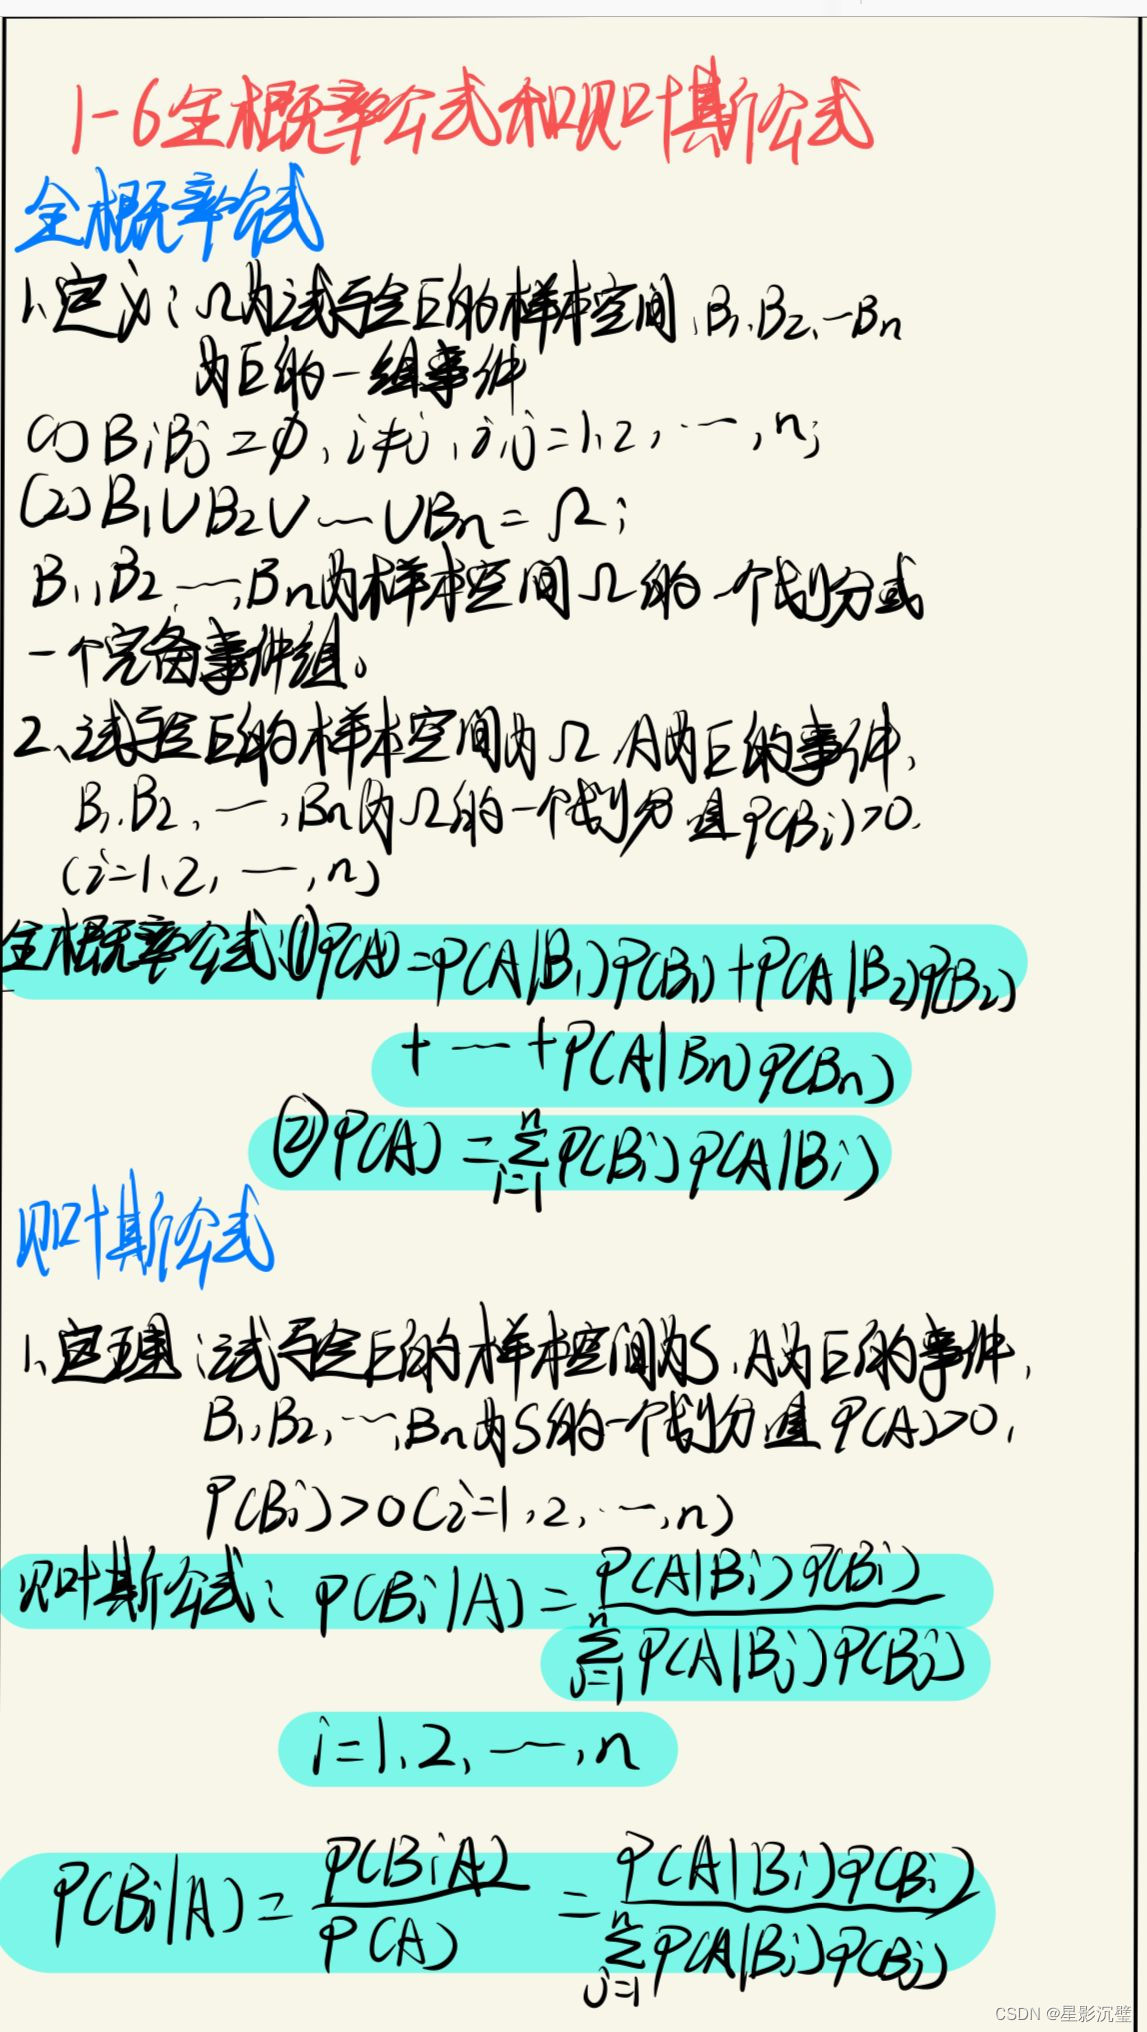 1-6全概率公式和贝叶斯公式
全概率公式
1、定义：Ω为试验E的样本空间，B₁，B₂，…Bn
为E的一组事件
(1) BiBj = ∅，i≠j，i,j=1，2，…，n；
(2) B₁∪B₂∪…∪Bn = Ω；
B₁，B₂，…，Bn为样本空间Ω的一个划分或
一个完备事件组。
2、试验E的样本空间为Ω，A为E的事件，
B₁，B₂，…，Bn为Ω的一个划分且P(Bi)>0，
(i=1，2，…，n)
全概率公式：①P(A)=P(A|B₁)P(B₁)+P(A|B₂)P(B₂)
+…+P(A|Bn)P(Bn)
②P(A)=∑ⁿᵢ₌₁P(Bi)P(A|Bi)
贝叶斯公式
1、定理：试验E的样本空间为S，A为E的事件，
B₁，B₂，…，Bn为S的一个划分且P(A)>0，
P(Bi)>0(i=1，2，…，n)
贝叶斯公式：P(Bi|A)=P(A|Bi)P(Bi)/∑ⁿⱼ₌₁P(A|Bj)P(Bj)
i=1，2，…，n
P(Bi|A)=P(BiA)/P(A)=P(A|Bi)P(Bi)/∑ⁿⱼ₌₁P(A|Bj)P(Bj)
CSDN @星影沉璧